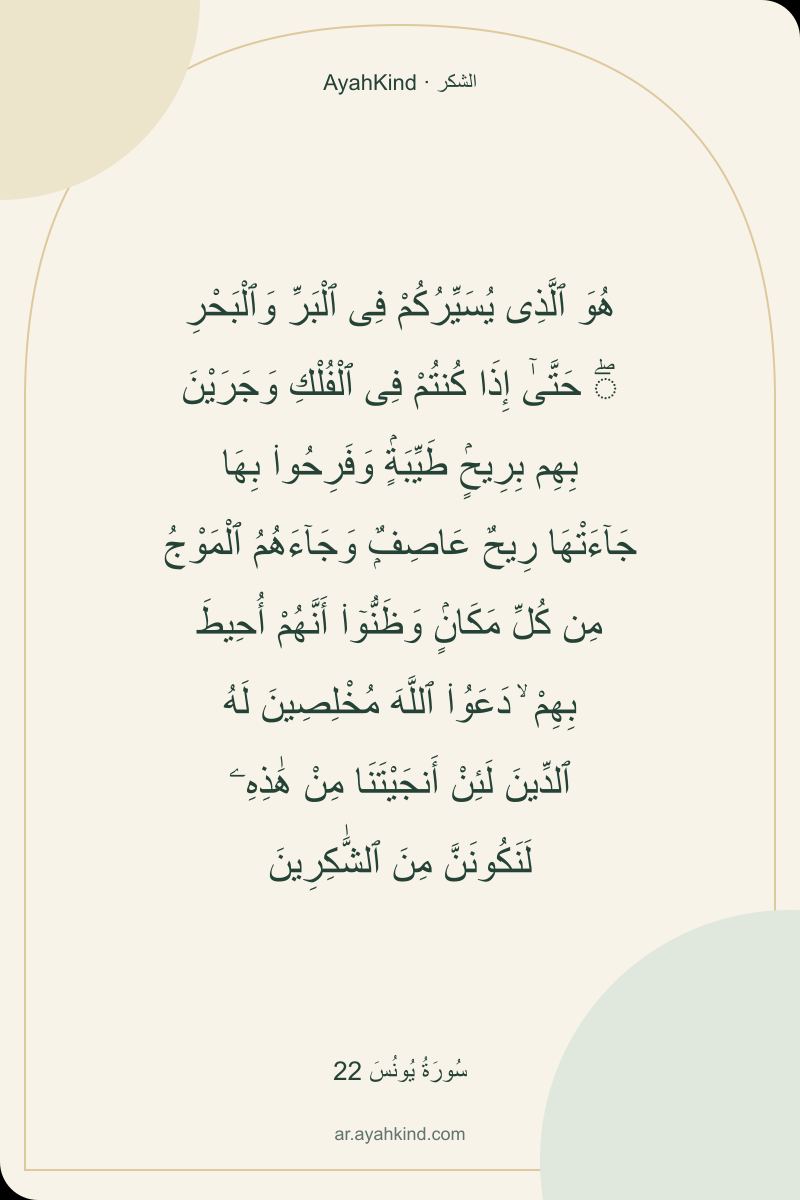 AyahKind · الشكر
هُوَ ٱلَّذِى يُسَيِّرُكُمْ فِى ٱلْبَرِّ وَٱلْبَحْرِ
ۖ حَتَّىٰٓ إِذَا كُنتُمْ فِى ٱلْفُلْكِ وَجَرَيْنَ
بِهِم بِرِيحٍۢ طَيِّبَةٍۢ وَفَرِحُوا۟ بِهَا
جَآءَتْهَا رِيحٌ عَاصِفٌۭ وَجَآءَهُمُ ٱلْمَوْجُ
مِن كُلِّ مَكَانٍۢ وَظَنُّوٓا۟ أَنَّهُمْ أُحِيطَ
بِهِمْ ۙ دَعَوُا۟ ٱللَّهَ مُخْلِصِينَ لَهُ
ٱلدِّينَ لَئِنْ أَنجَيْتَنَا مِنْ هَٰذِهِۦ
لَنَكُونَنَّ مِنَ ٱلشَّٰكِرِينَ
سُورَةُ يُونُسَ 22
ar.ayahkind.com